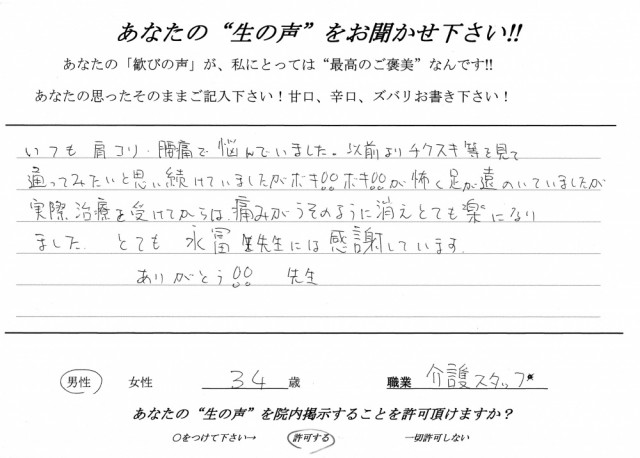 あなたの“生の声”をお聞かせ下さい!!
あなたの「歓びの声」が、私にとっては“最高のご褒美”なんです!!
あなたの思ったそのままご記入下さい！甘口、辛口、ズバリお書き下さい！
いつも肩コリ・腰痛で悩んでいました。以前よりチクスキ等を見て
通ってみたいと思い続けていましたがボキ!!ボキ!!が怖く足が遠のいていましたが
実際、治療を受けてからは、痛みがうそのように消えとても楽になり
ました。とても永冨先生には感謝しています。
ありがとう!! 先生
男性 女性 34歳 職業 介護スタッフ
あなたの“生の声”を院内掲示することを許可頂けますか？
○をつけて下さい→ 許可する 一切許可しない